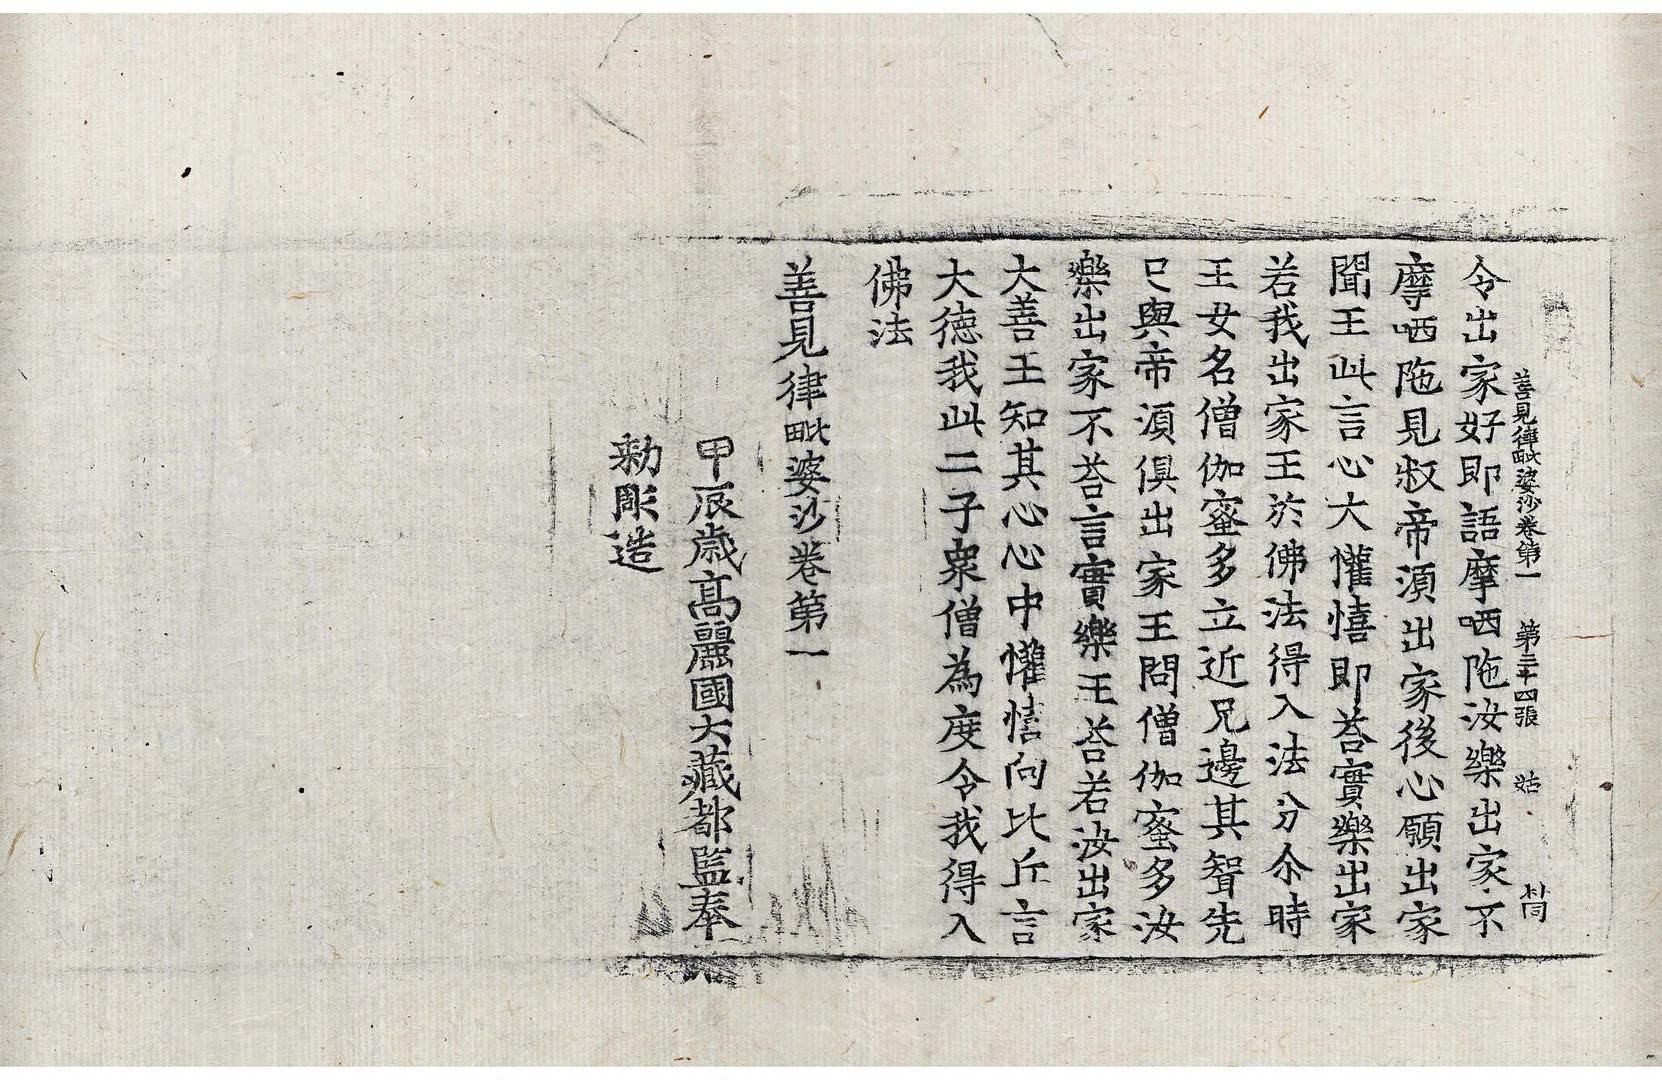 善見律毗婆沙卷第一 第三十四張 姑
令出家好即語摩哂陁汝樂出家不
摩哂陁見叔帝湏出家後心願出家
聞王此言心大懽憘即荅實樂出家
若我出家王於佛法得入法分尒時
王女名僧伽蜜多立近兄邊其聟先
已與帝湏俱出家王問僧伽蜜多汝
樂出家不荅言實樂王荅若汝出家
大善王知其心心中懽憘向比丘言
大德我此二子衆僧為度令我得入
佛法
善見律毗婆沙卷第一
甲辰歲高麗國大藏都監奉
勑彫造